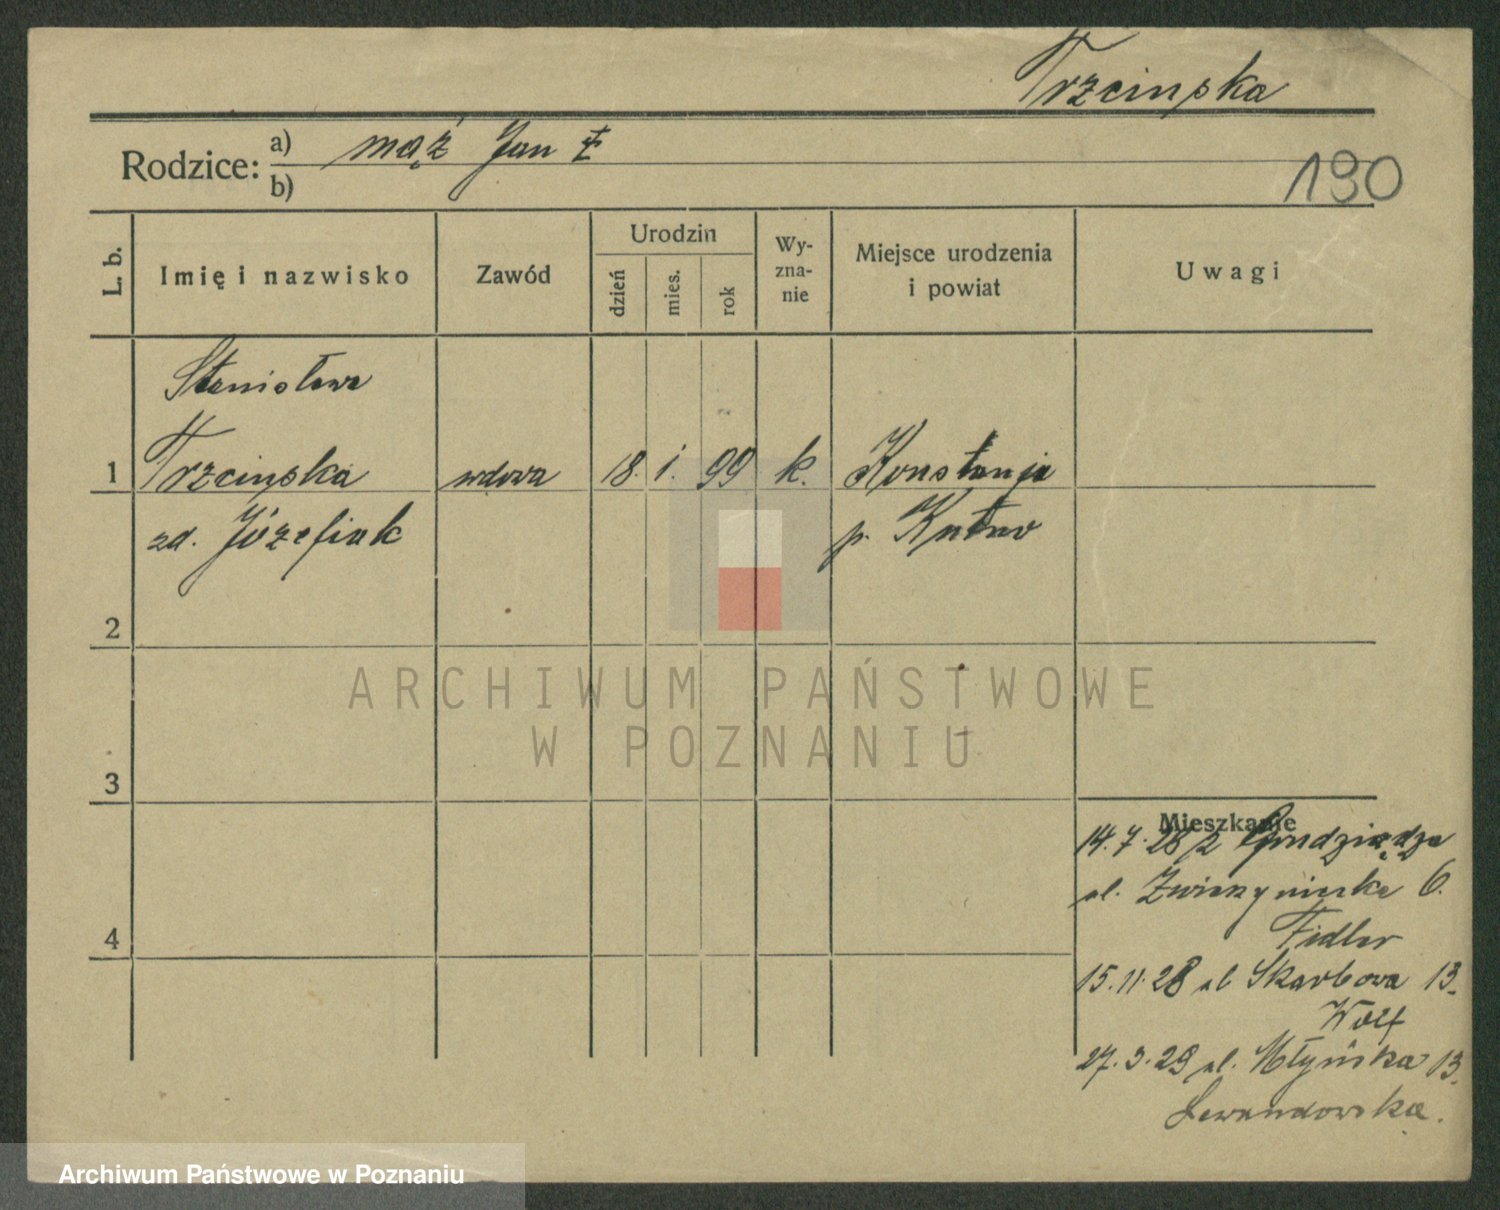 Trzcinska
Rodzice: a) mąż Jan
b)
190
L. b.
Imię i nazwisko
Zawód
Urodzin
dzień
mies.
rok
Wy-
zna-
nie
Miejsce urodzenia
i powiat
Uwagi
Stanisława
1 Trzcinska wdowa 18. 1. 99 k. Konstanja
zd. Józefiak p. Kutno
2
3
4
Mieszkanie
14.7.28 z Grudziądza
ul. Zwierzyniecka 6.
Fidler
15.11.28 ul Skarbowa 13.
Wolf
27.3.29 ul. Młyńska 13.
Lewandowska.
ARCHIWUM PAŃSTWOWE
W POZNANIU
Archiwum Państwowe w Poznaniu